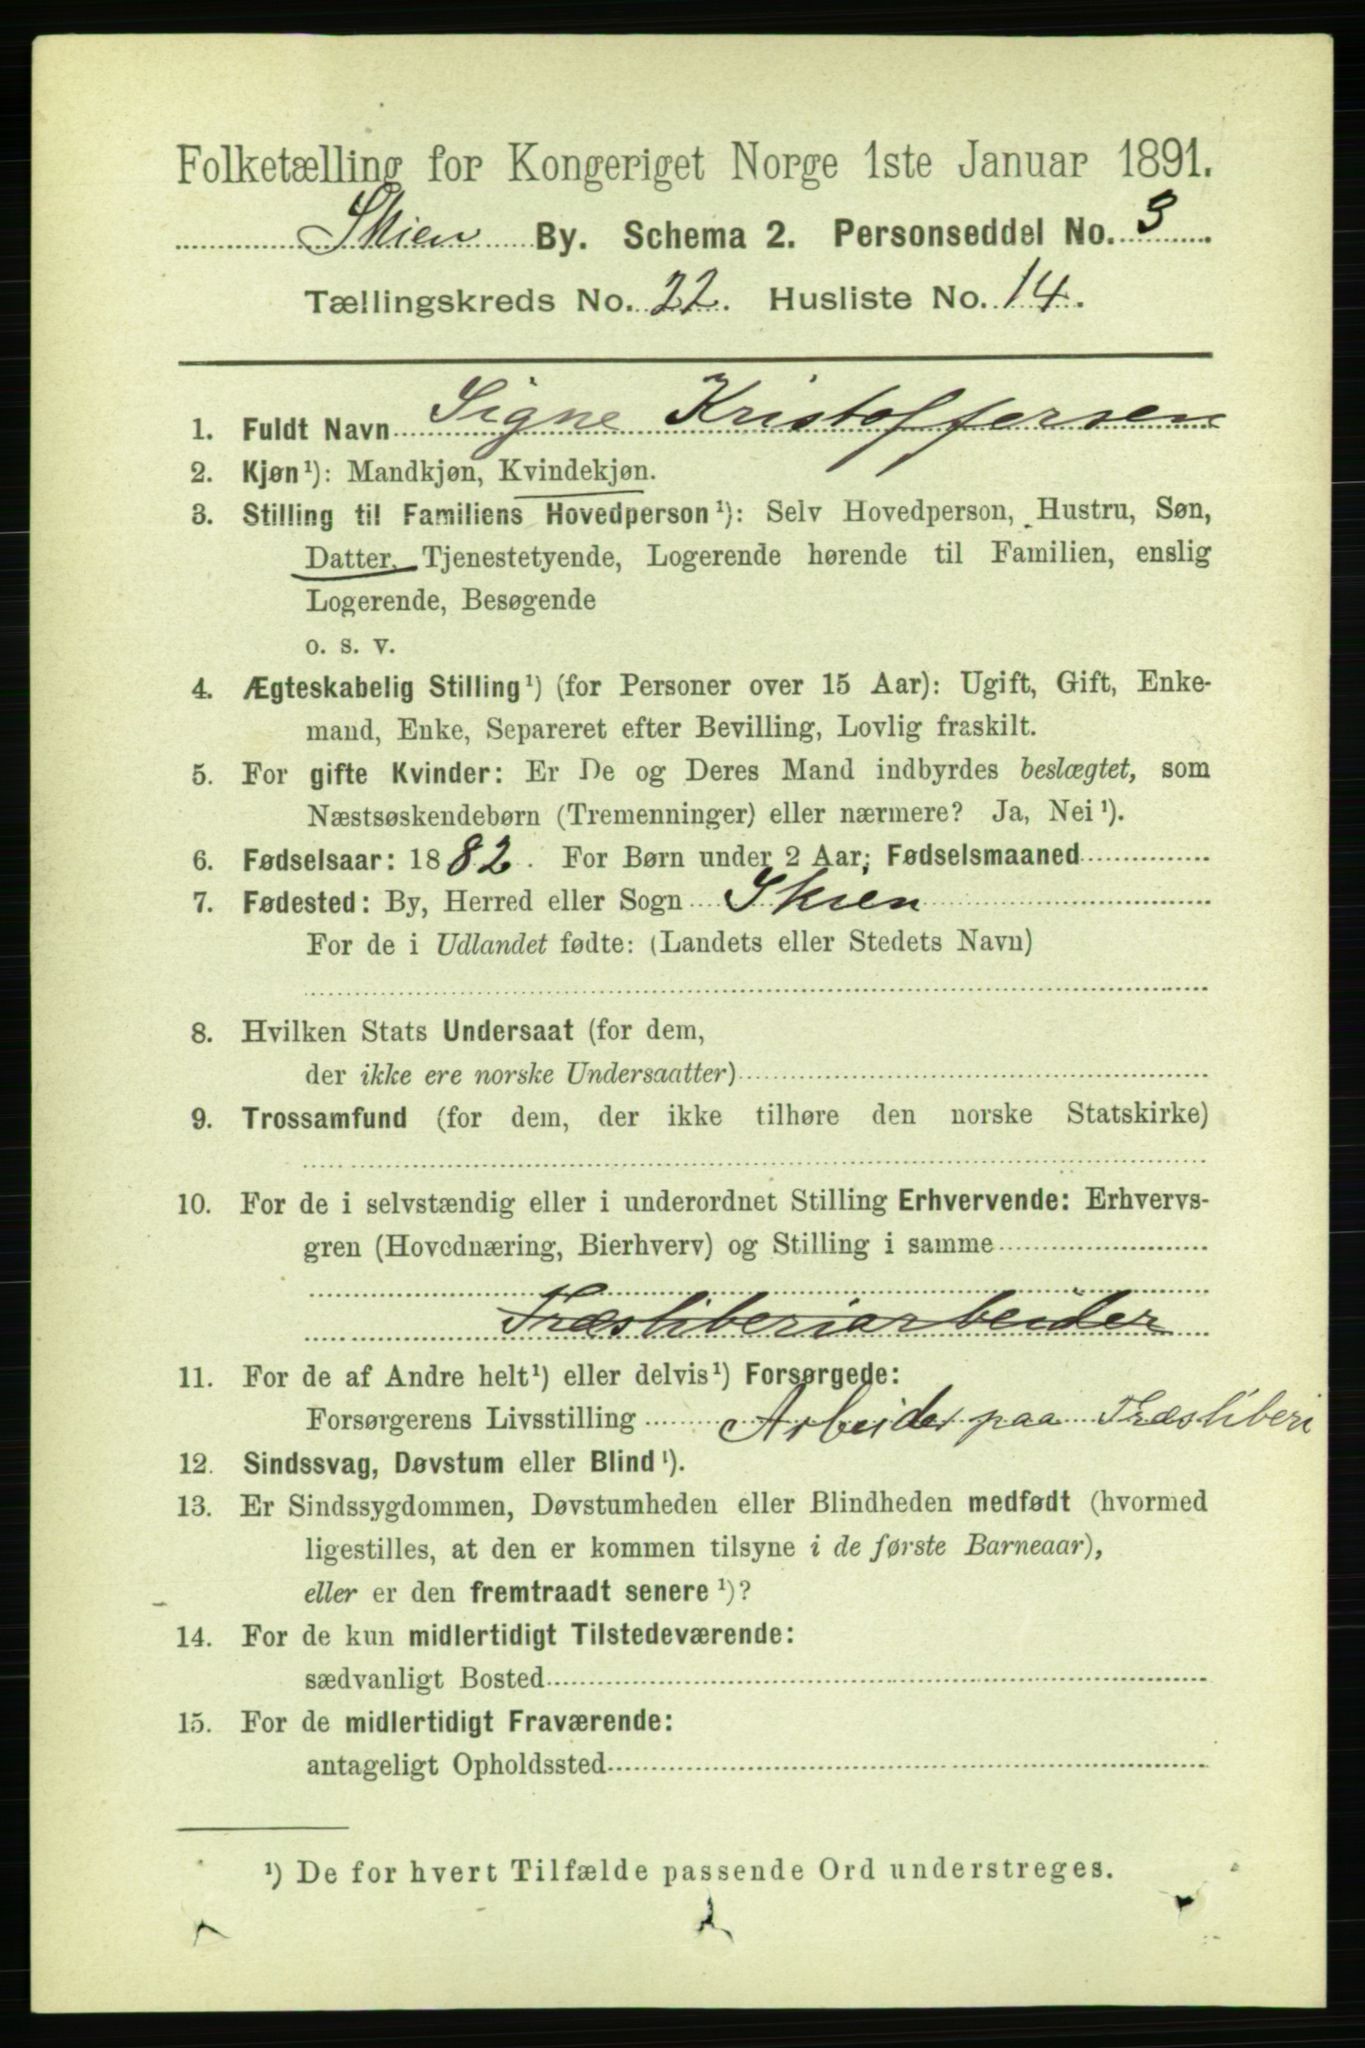 Folketælling for Kongeriget Norge 1ste Januar 1891.
Skien By. Schema 2. Personseddel No. 3
Tællingskreds No. 22. Husliste No. 14.
1. Fuldt Navn Signe Kristoffersen
2. Kjøn¹): Mandkjøn, Kvindekjøn.
3. Stilling til Familiens Hovedperson¹): Selv Hovedperson, Hustru, Søn,
Datter, Tjenestetyende, Logerende hørende til Familien, enslig
Logerende, Besøgende
o. s. v.
4. Ægteskabelig Stilling¹) (for Personer over 15 Aar): Ugift, Gift, Enke-
mand, Enke, Separeret efter Bevilling, Lovlig fraskilt.
5. For gifte Kvinder: Er De og Deres Mand indbyrdes beslægtet, som
Næstsøskendebørn (Tremenninger) eller nærmere? Ja, Nei¹).
6. Fødselsaar: 1882. For Børn under 2 Aar: Fødselsmaaned
7. Fødested: By, Herred eller Sogn Skien
For de i Udlandet fødte: (Landets eller Stedets Navn)
8. Hvilken Stats Undersaat (for dem,
der ikke ere norske Undersaatter)
9. Trossamfund (for dem, der ikke tilhøre den norske Statskirke)
10. For de i selvstændig eller i underordnet Stilling Erhvervende: Erhvervs-
gren (Hovednæring, Bierhverv) og Stilling i samme
Træsliberiarbeider
11. For de af Andre helt¹) eller delvis¹) Forsørgede:
Forsørgerens Livsstilling Arbeider paa Træsliberi
12. Sindssvag, Døvstum eller Blind¹).
13. Er Sindssygdommen, Døvstumheden eller Blindheden medfødt (hvormed
ligestilles, at den er kommen tilsyne i de første Barneaar),
eller er den fremtraadt senere¹)?
14. For de kun midlertidigt Tilstedeværende:
sædvanligt Bosted
15. For de midlertidigt Fraværende:
antageligt Opholdssted
¹) De for hvert Tilfælde passende Ord understreges.